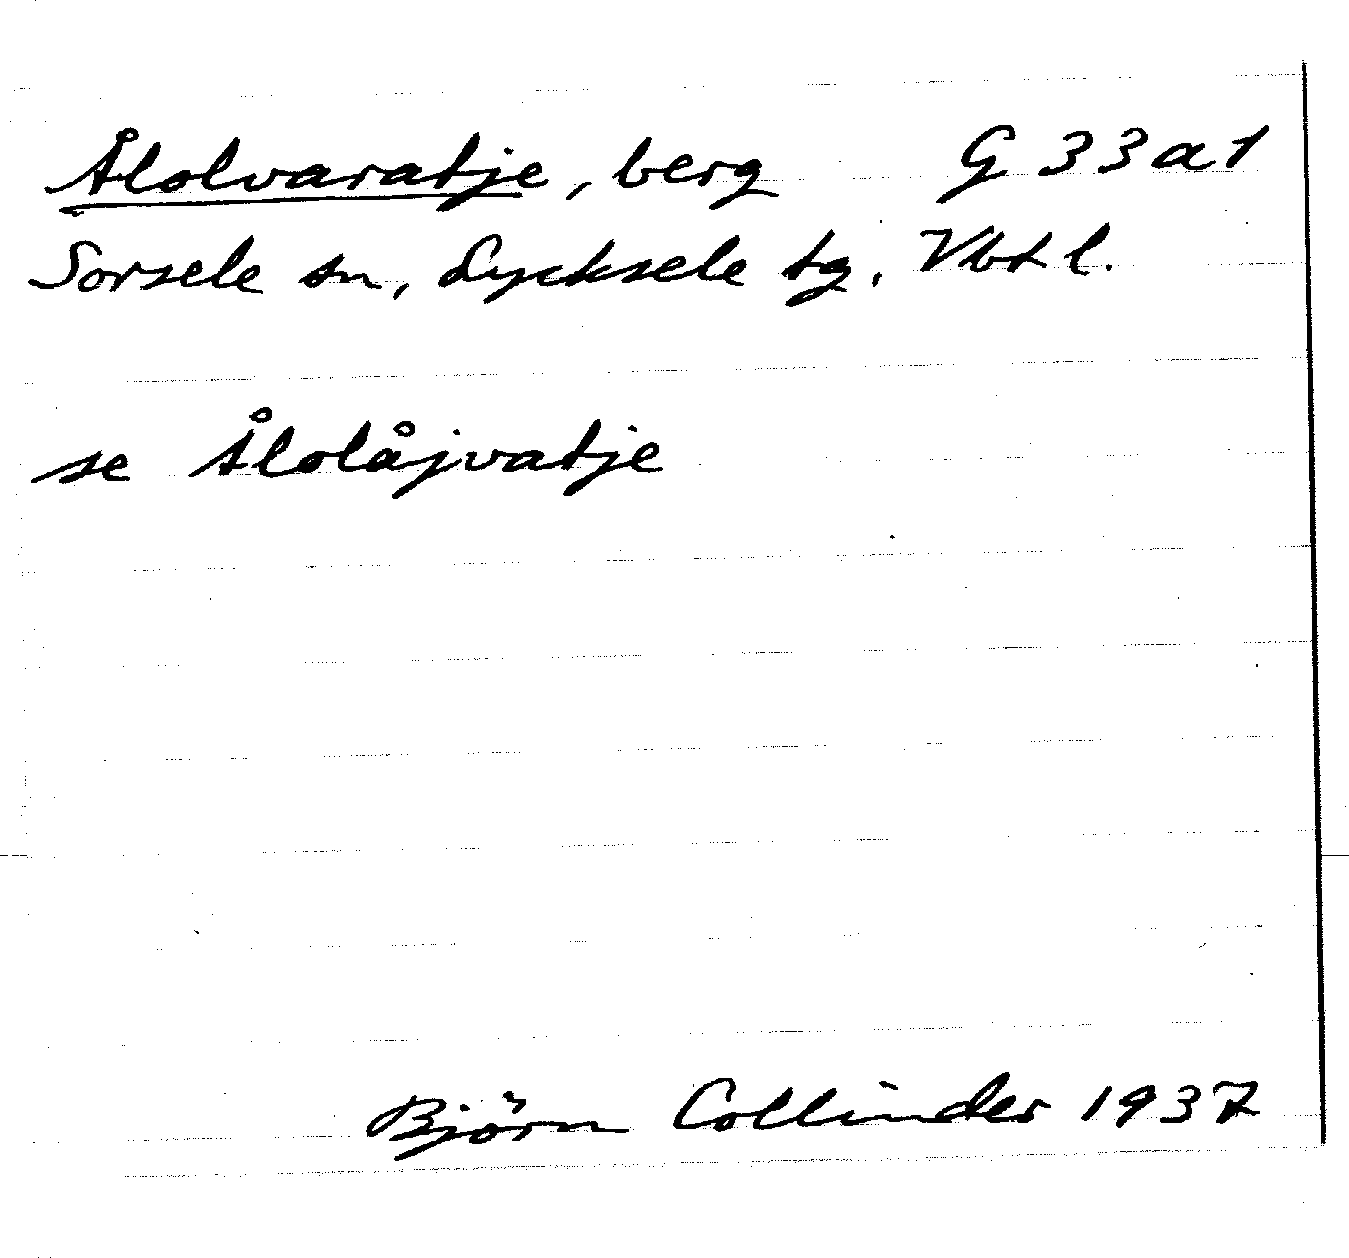 Ålolvaratje, berg G 33a1
Sorsele sn, Lycksele tg, Vbtl.
se Ålolåjvatje
Björn Collinder 1937